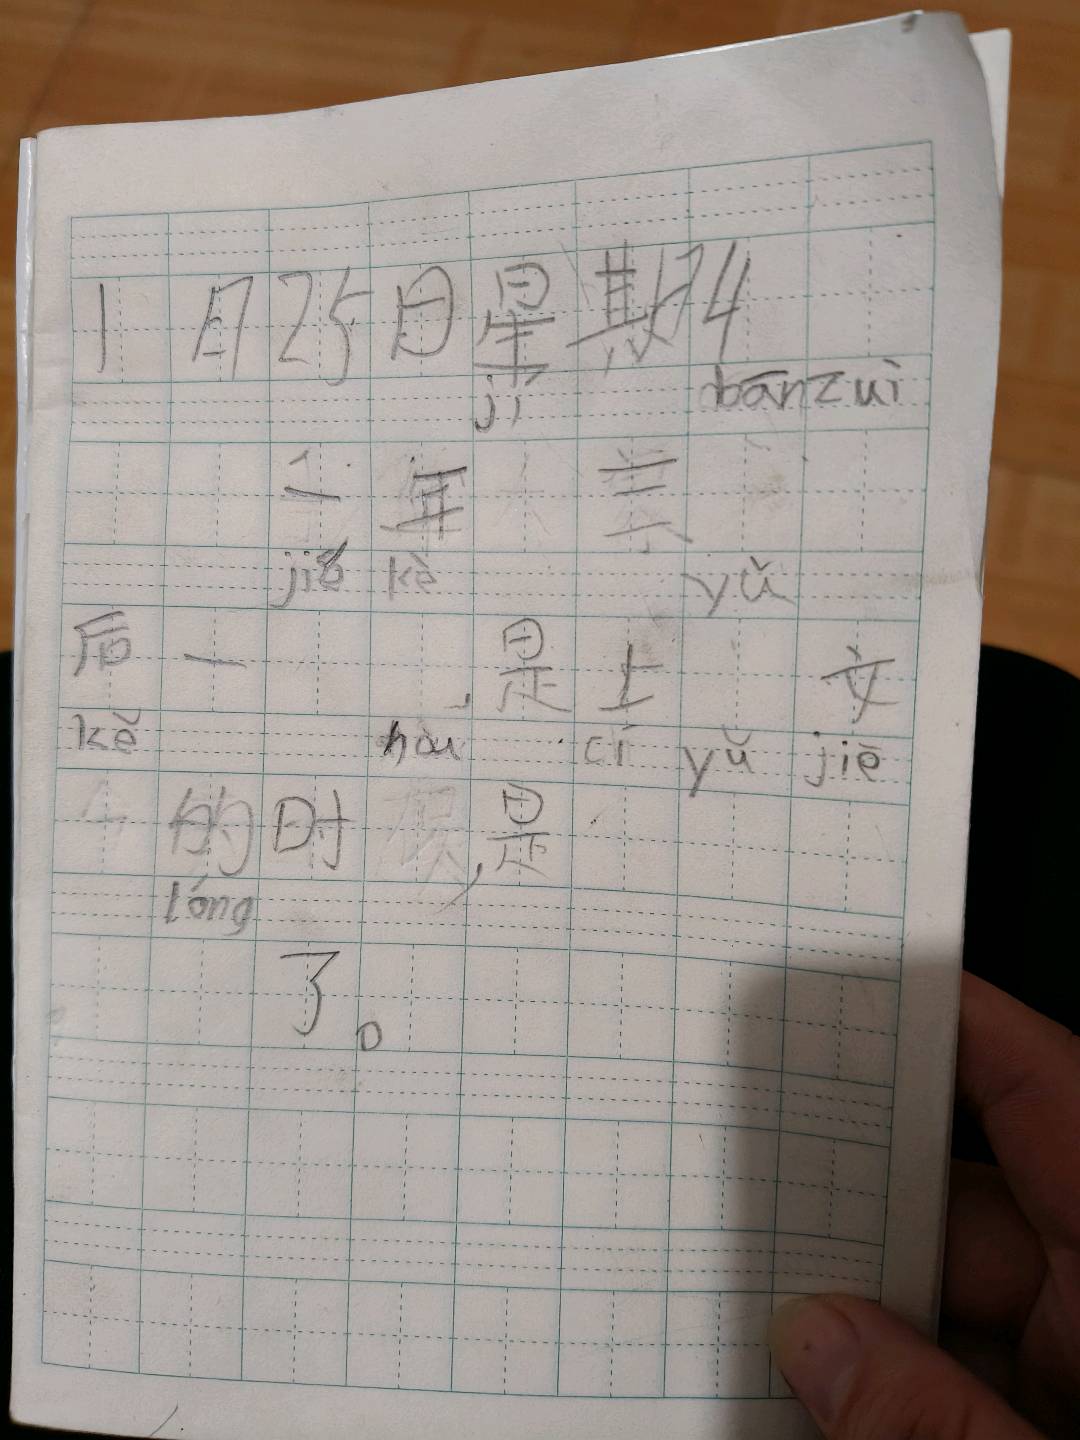 1月25日星期24
jí bānzuì
二年
jié kè yǔ
后一,是上文
kě hòu cí yǔ jiē
的时候,是
lóng
了。